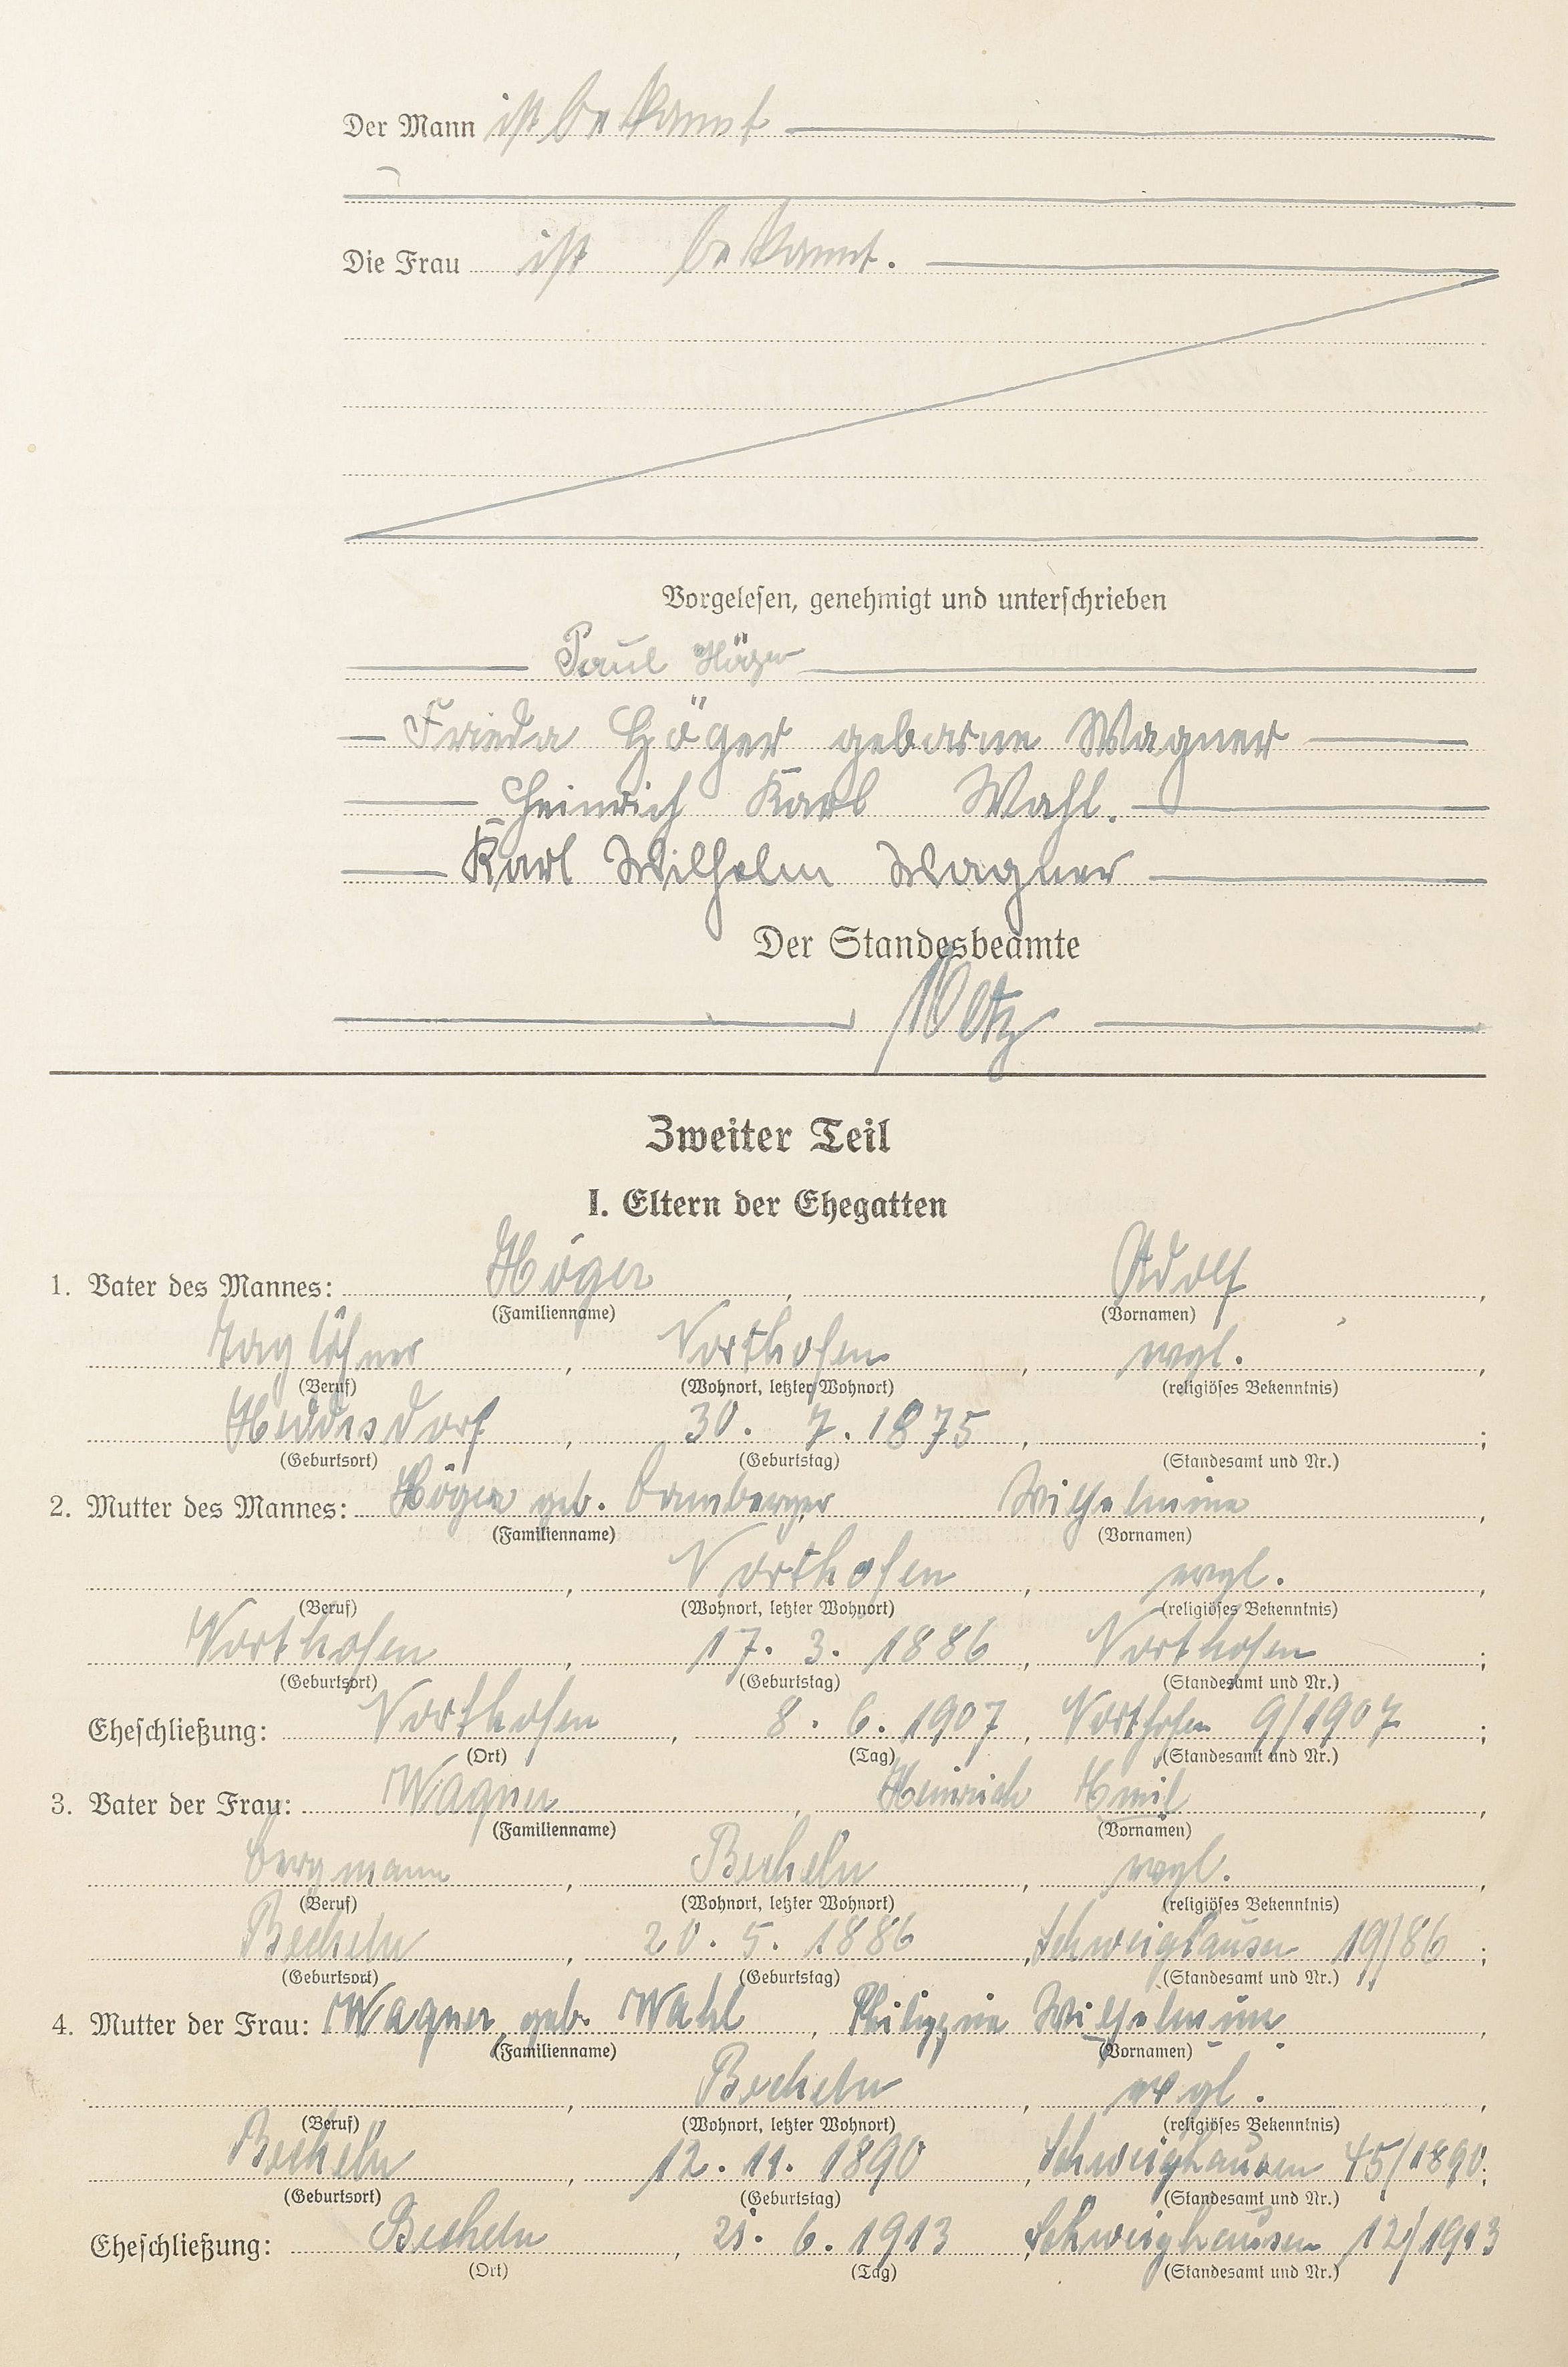 Der Mann ist bekannt
Die Frau ist bekannt.
Vorgelesen, genehmigt und unterschrieben
Paul Höger
Frieda Höger geborne Wagner
Heinrich Karl Wahl.
Karl Wilhelm Wagner
Der Standesbeamte
Zweiter Teil
I. Eltern der Ehegatten
1. Vater des Mannes: Höger, Adolf,
(Familienname) (Vornamen)
Taglöhner, Northofen, evgl.,
(Beruf) (Wohnort, letzter Wohnort) (religiöses Bekenntnis)
Heddesdorf, 30. 7. 1875, ;
(Geburtsort) (Geburtstag) (Standesamt und Nr.)
2. Mutter des Mannes: Höger geb. Bamberger Wilhelmine,
(Familienname) (Vornamen)
, Northofen, evgl.,
(Beruf) (Wohnort, letzter Wohnort) (religiöses Bekenntnis)
Northofen, 17. 3. 1886, Northofen;
(Geburtsort) (Geburtstag) (Standesamt und Nr.)
Eheschließung: Northofen, 8. 6. 1907, Northofen 9/1907;
(Ort) (Tag) (Standesamt und Nr.)
3. Vater der Frau: Wagner, Heinrich Emil,
(Familienname) (Vornamen)
Bergmann, Becheln, evgl.,
(Beruf) (Wohnort, letzter Wohnort) (religiöses Bekenntnis)
Becheln, 20. 5. 1886, Schweighausen 19/86;
(Geburtsort) (Geburtstag) (Standesamt und Nr.)
4. Mutter der Frau: Wagner, geb. Wahl, Philippine Wilhelmine,
(Familienname) (Vornamen)
, Becheln, evgl.,
(Beruf) (Wohnort, letzter Wohnort) (religiöses Bekenntnis)
Becheln, 12. 11. 1890, Schweighausen 45/1890;
(Geburtsort) (Geburtstag) (Standesamt und Nr.)
Eheschließung: Becheln, 21. 6. 1913, Schweighausen 12/1913
(Ort) (Tag) (Standesamt und Nr.)